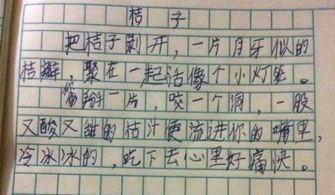 桔子
把桔子剥开，一片月牙似的
桔瓣，聚在一起活像个小灯笼。
掰一片，咬一个洞，一股
又酸又甜的桔汁便流进你的嘴里，
冷冰冰的，吃下去心里好痛快。